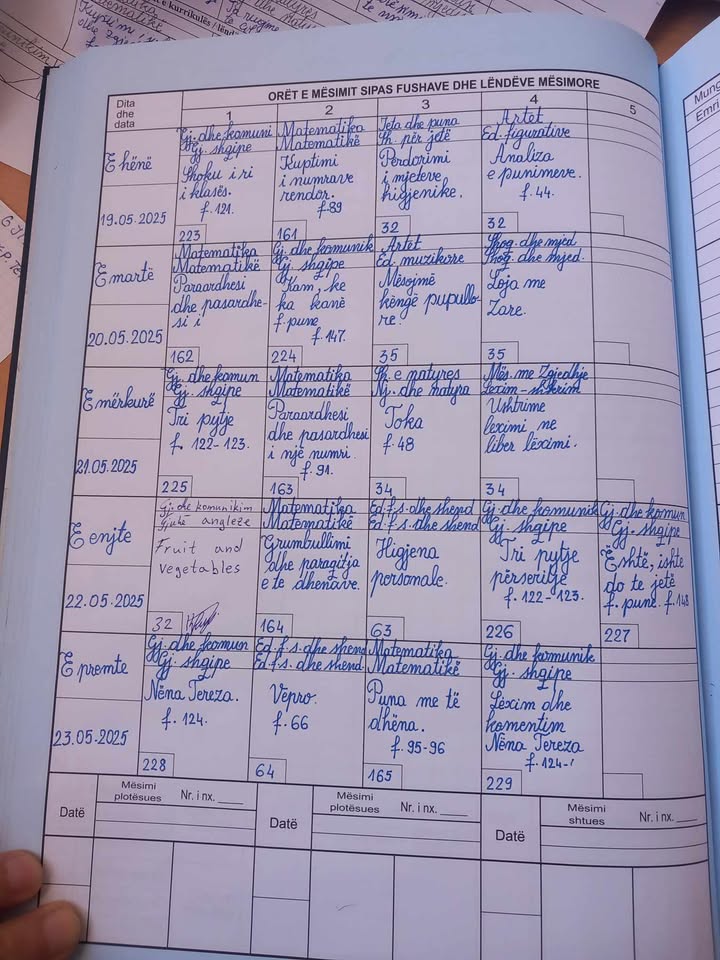 ORËT E MËSIMIT SIPAS FUSHAVE DHE LËNDËVE MËSIMORE
Dita dhe data
1
2
3
4
5
E hënë
19.05.2025
Gj. dhe komuni
Gj. shqipe
Shoku i ri
i klasës.
f. 121.
223
Matematika
Matematikë
Kuptimi
i numrave
rendor.
f. 89
161
Jeta dhe puna
Sh. për jetë
Përdorimi
i mjeteve
higjenike.
32
Artet
Ed. figurative
Analiza
e punimeve.
f. 44.
32
E martë
20.05.2025
Matematika
Matematikë
Paraardhesi
dhe pasardhe-
si i
162
Gj. dhe komunik
Gj. shqipe
Kam, ke
ka kanë
f. pune
f. 147.
224
Artet
Ed. muzikore
Mësojmë
këngë pupullo-
re.
35
Shoq. dhe mjed
Shoq. dhe mjed.
Loja me
Zare.
35
E mërkurë
21.05.2025
Gj. dhe komun
Gj. shqipe
Tri pytje
f. 122-123.
225
Matematika
Matematikë
Paraardhesi
dhe pasardhesi
i një numri.
f. 91.
163
Sh. e natyres
Nj. dhe natyra
Toka
f. 48
34
Mës. me Zgjedhje
Lexim - shkrim
Ushtrime
leximi ne
liber lëximi.
34
E enjte
22.05.2025
Gj. dhe komunikim
Gjuhë angleze
Fruit and
vegetables
32
Matematika
Matematikë
Grumbullimi
dhe paraqitja
e te dhenave.
164
Ed. f. s. dhe shend
Ed. f. s. dhe shend
Higjena
personale.
63
Gj. dhe komunik
Gj. shqipe
Tri pytje
përseritje
f. 122-123.
226
Gj. dhe komun
Gj. shqipe
Është, ishte
do te jetë
f. pune. f. 148
227
E premte
23.05.2025
Gj. dhe komun
Gj. shqipe
Nëna Tereza.
f. 124.
228
Ed. f. s. dhe shend
Ed. f. s. dhe shend
Vepro.
f. 66
64
Matematika
Matematikë
Puna me të
dhëna.
f. 95-96
165
Gj. dhe komunik
Gj. shqipe
Lëxim dhe
komentim
Nëna Tereza
f. 124-
229
Datë
Mësimi plotësues
Nr. i nx. ____
Datë
Mësimi plotësues
Nr. i nx. ____
Datë
Mësimi shtues
Nr. i nx. ____
Mung
Emri